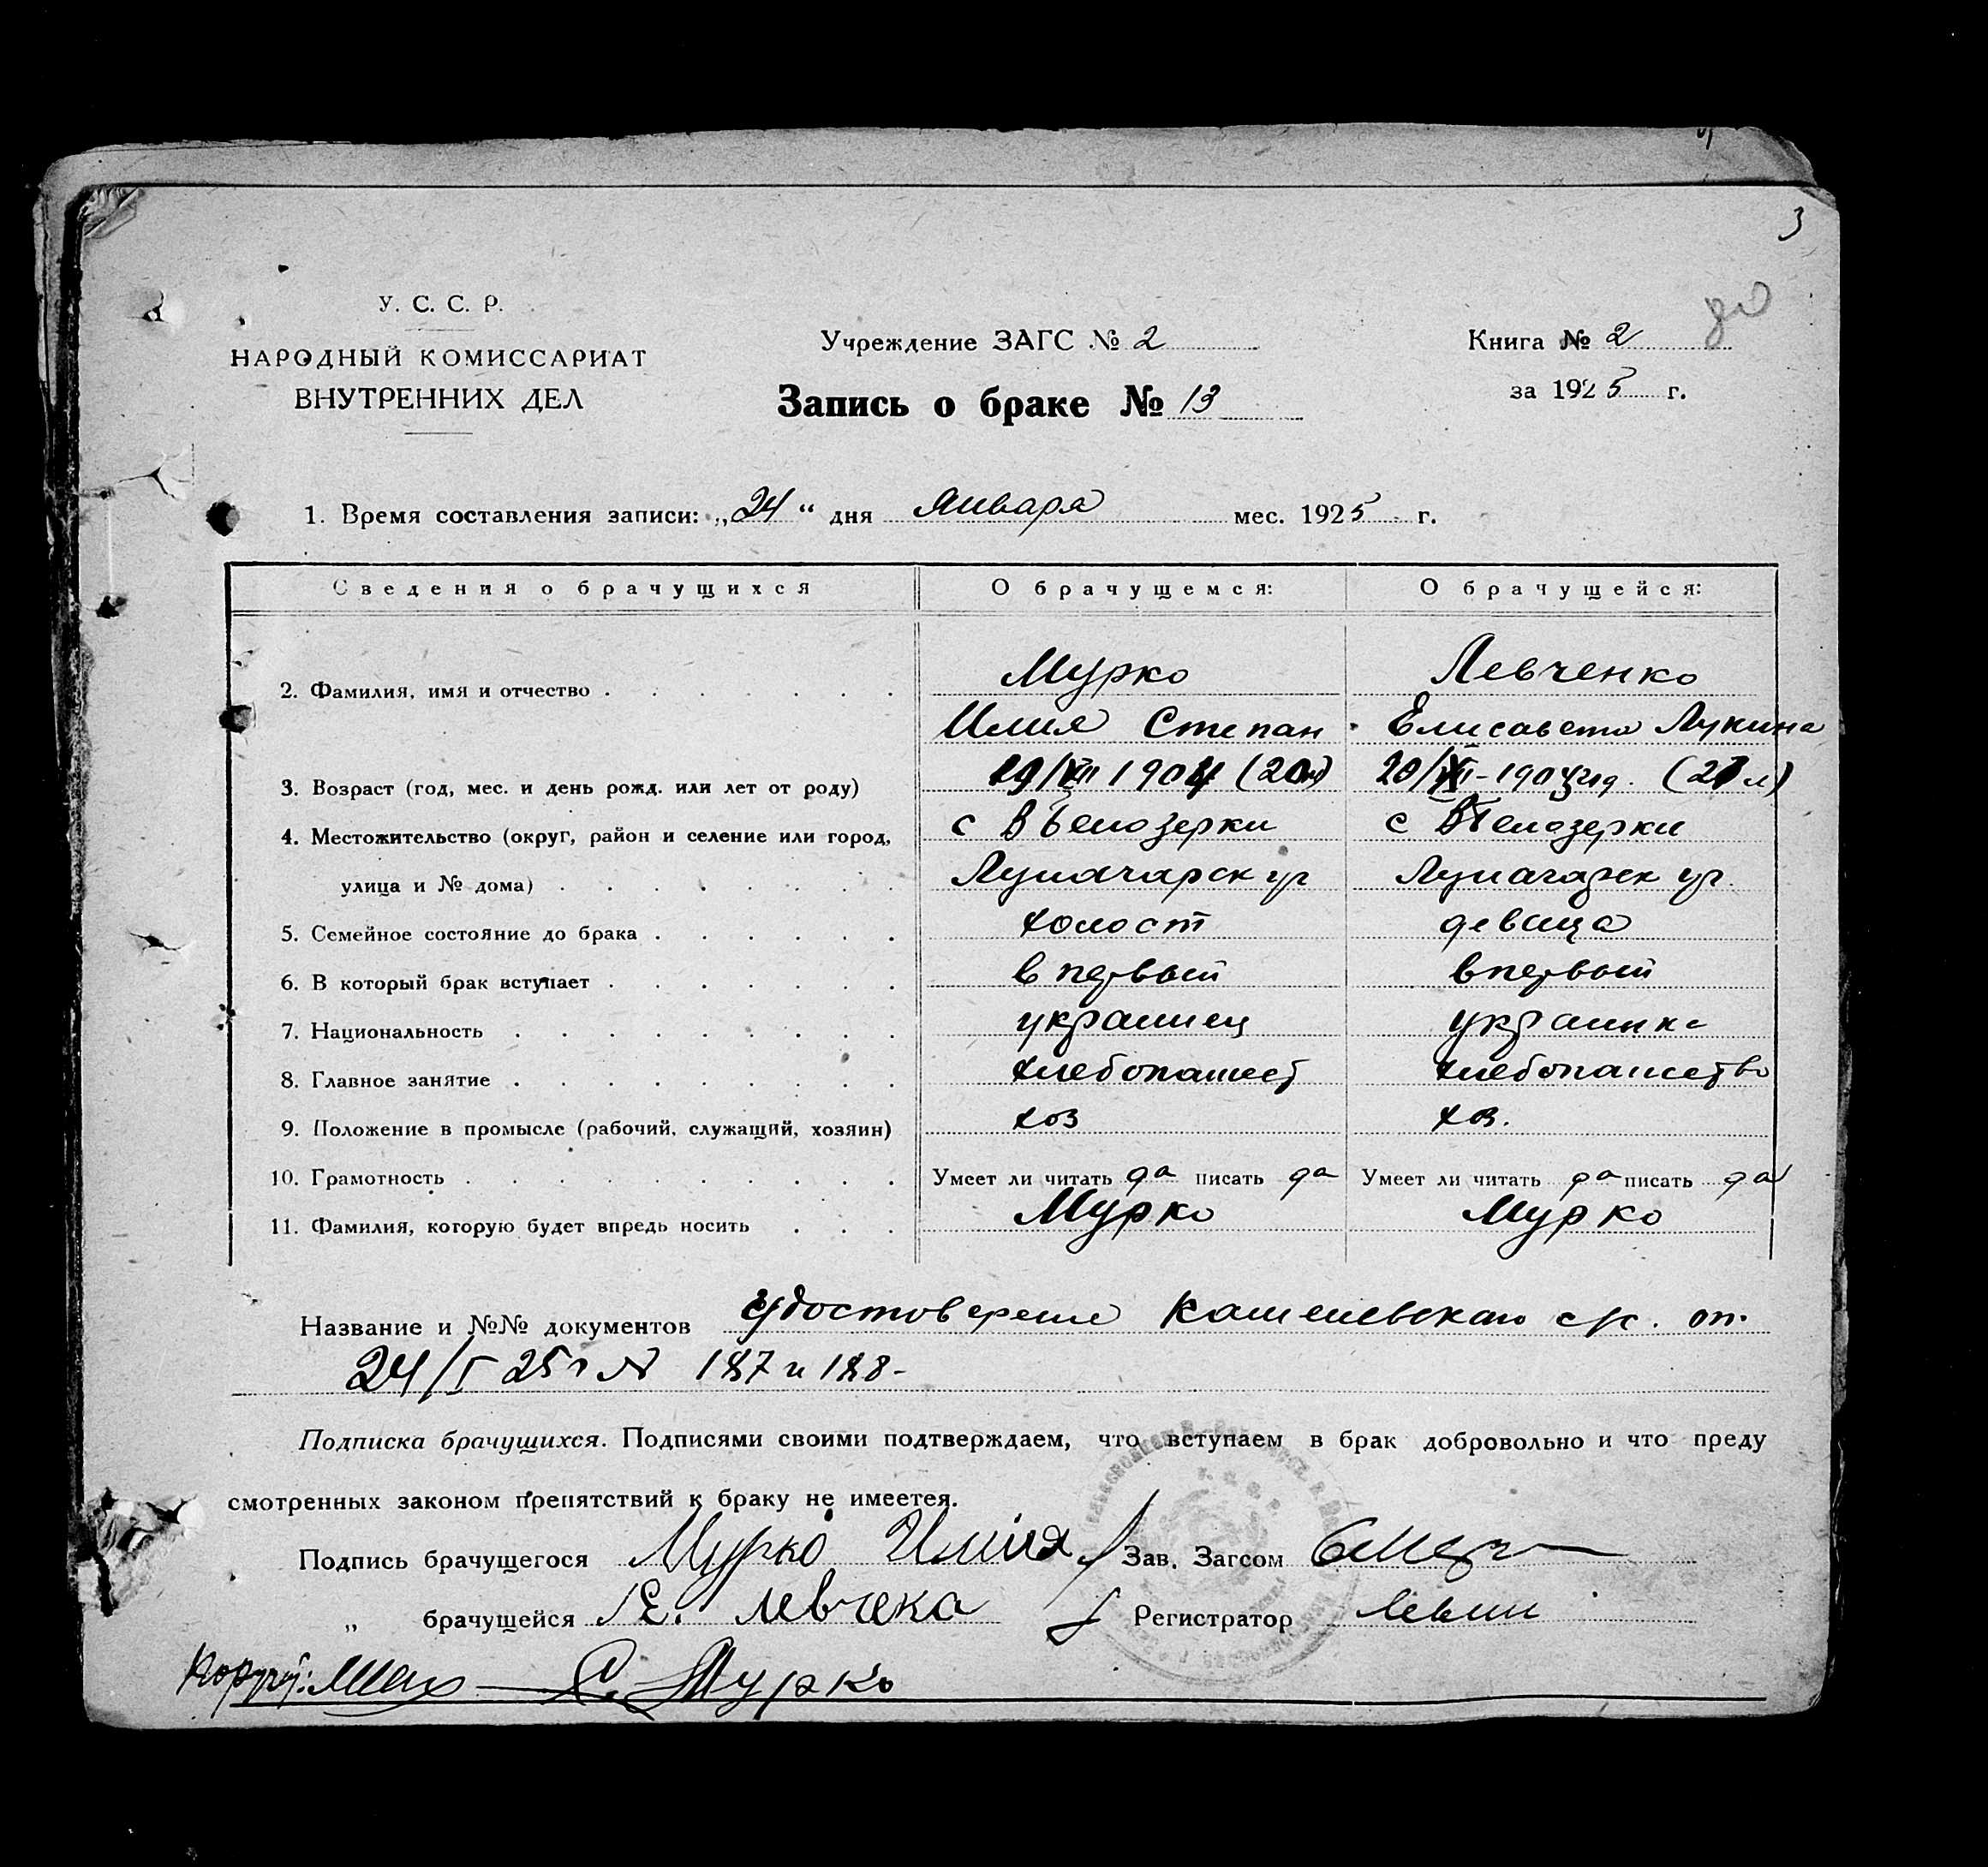 3
У. С. С. Р.
НАРОДНЫЙ КОМИССАРИАТ
ВНУТРЕННИХ ДЕЛ
Учреждение ЗАГС № 2
Запись о браке № 13
Книга № 2
за 1925 г.
1. Время составления записи: „24“ дня Января мес. 1925 г.
Сведения о брачущихся О брачущемся: О брачущейся:
2. Фамилия, имя и отчество Мурко Левченко
Илия Степан Елисавета Лукина
3. Возраст (год, мес. и день рожд. или лет от роду) 1904 (20л) 20/ 1903 (21 л)
4. Местожительство (округ, район и селение или город, с В Белозерки с В Белозерки
улица и № дома) Луначарск Луначарск
5. Семейное состояние до брака холост девица
6. В который брак вступает в первый в первый
7. Национальность украинец украинка
8. Главное занятие хлебопашест хлебопашество
9. Положение в промысле (рабочий, служащий, хозяин) хоз хоз.
10. Грамотность Умеет ли читать да писать да Умеет ли читать да писать да
11. Фамилия, которую будет впредь носить Мурко Мурко
Название и №№ документов удостоверение с/с. от.
24/I 25 г № 187 и 188-
Подписка брачущихся. Подписями своими подтверждаем, что вступаем в брак добровольно и что преду
смотренных законом препятствий к браку не имеетея.
Подпись брачущегося Мурко Илия Зав. Загсом
„ брачущейся Е. Левчека Регистратор Левин
С. Мурко